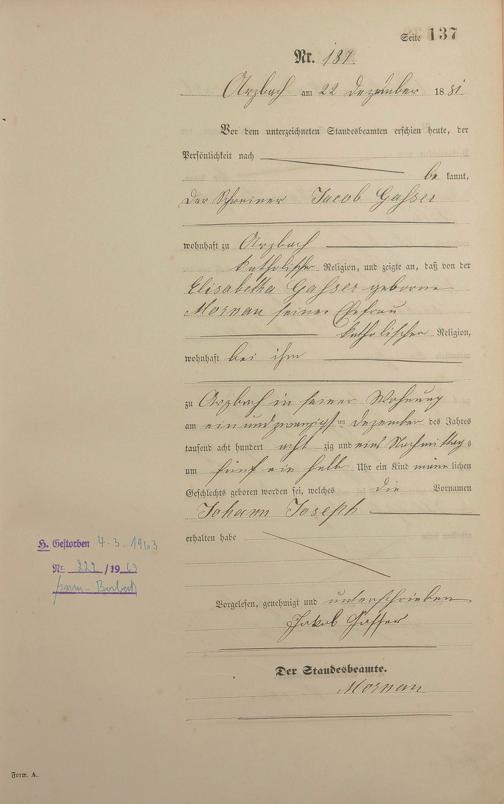 Seite 137
Nr. 137.
Arzbach am 22 Dezember 1881.
Vor dem unterzeichneten Standesbeamten erschien heute, der
Persönlichkeit nach
be kannt,
der Schreiner Jacob Gasser
wohnhaft zu Arzbach
katholischer Religion, und zeigte an, daß von der
Elisabetha Gasser geborne
Mornau seiner Ehefrau
katholischer Religion,
wohnhaft bei ihm
zu Arzbach in seiner Wohnung
am ein und zwanzigst ten Dezember des Jahres
tausend acht hundert acht zig und eins Nachmittags
um fünf ein halb Uhr ein Kind männ lichen
Geschlechts geboren worden sei, welches die Vornamen
Johann Joseph
erhalten habe
H. Gestorben 4.3.1963
Nr. 222 / 1963
Borbeck
Vorgelesen, genehmigt und unterschrieben
Jakob Gasser
Der Standesbeamte.
Mornau
Form. A.